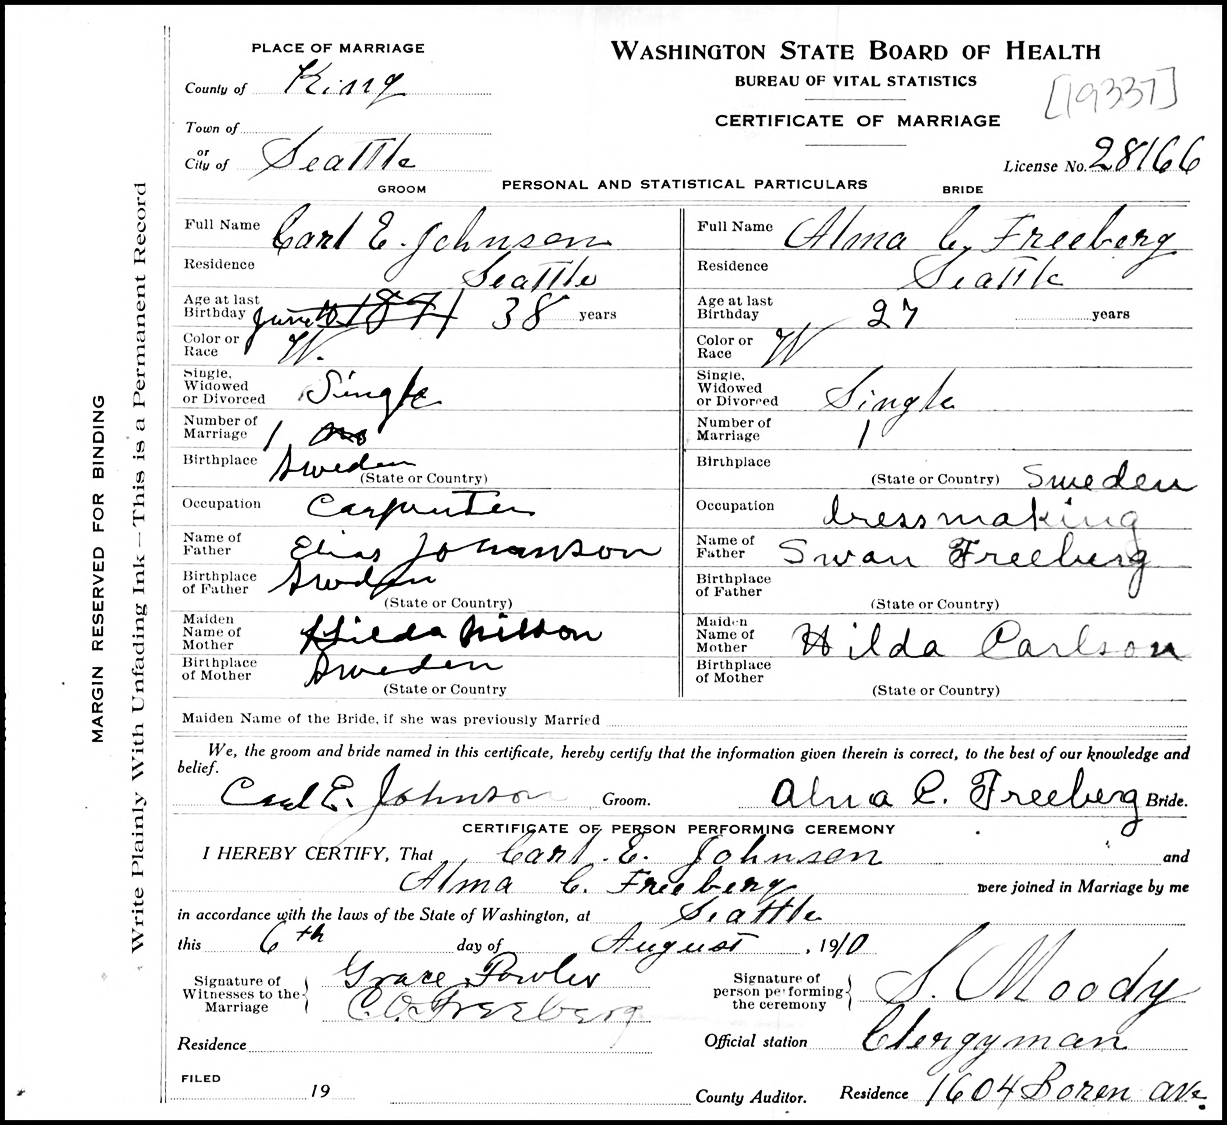 PLACE OF MARRIAGE
County of King
Town of
or
City of Seattle
WASHINGTON STATE BOARD OF HEALTH
BUREAU OF VITAL STATISTICS
[19337]
CERTIFICATE OF MARRIAGE
License No. 28166
GROOM PERSONAL AND STATISTICAL PARTICULARS BRIDE
Full Name Carl E. Johnson
Residence Seattle
Age at last Birthday 1871 38 years
Color or Race W.
Single, Widowed or Divorced Single
Number of Marriage 1
Birthplace Sweden
(State or Country)
Occupation Carpenter
Name of Father Elias Johanson
Birthplace of Father Sweden
(State or Country)
Maiden Name of Mother Hilda Nilson
Birthplace of Mother Sweden
(State or Country
Full Name Alma C. Freeberg
Residence Seattle
Age at last Birthday 27 years
Color or Race W
Single, Widowed or Divorced Single
Number of Marriage 1
Birthplace
(State or Country) Sweden
Occupation dressmaking
Name of Father Swan Freeberg
Birthplace of Father
(State or Country)
Maiden Name of Mother Hilda Carlson
Birthplace of Mother
(State or Country)
Maiden Name of the Bride, if she was previously Married
We, the groom and bride named in this certificate, hereby certify that the information given therein is correct, to the best of our knowledge and
belief.
Carl E. Johnson Groom. Alma C. Freeberg Bride.
CERTIFICATE OF PERSON PERFORMING CEREMONY
I HEREBY CERTIFY, That Carl E. Johnson and
Alma C. Freeberg were joined in Marriage by me
in accordance with the laws of the State of Washington, at Seattle
this 6th day of August, 1910
Signature of Witnesses to the Marriage { Grace Fowler
C. O. Freeberg
Signature of person performing the ceremony { S. Moody
Residence
Official station Clergyman
FILED
19
County Auditor. Residence 1604 Boren Ave.
MARGIN RESERVED FOR BINDING
Write Plainly With Unfading Ink—This is a Permanent Record